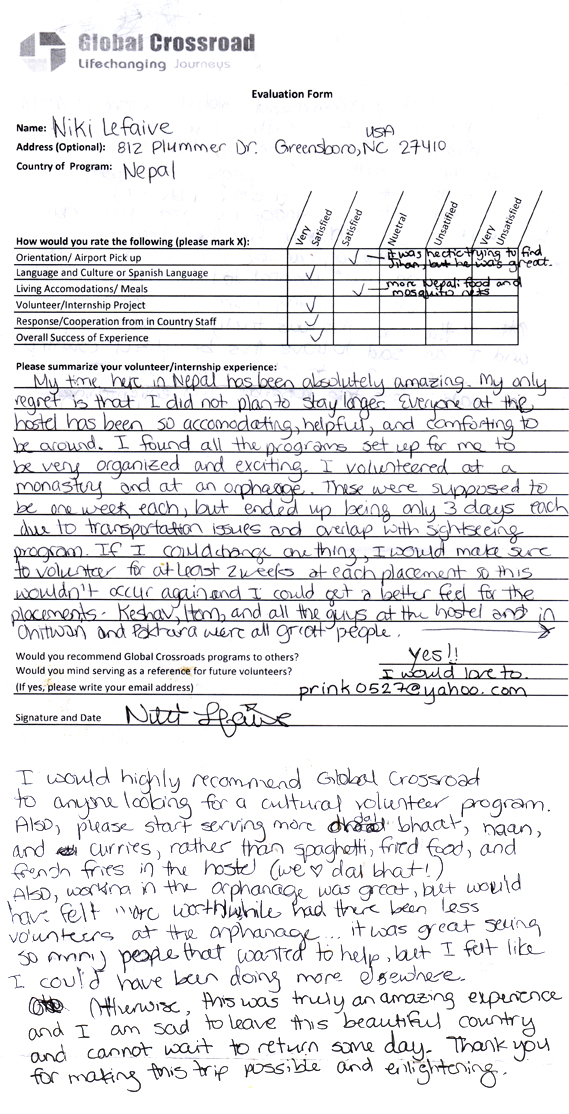 Global Crossroad
Lifechanging Journeys
Evaluation Form
Name: Niki Lefaive
USA
Address (Optional): 812 Plummer Dr. Greensboro, NC 27410
Country of Program: Nepal
How would you rate the following (please mark X): Very Satisfied Satisfied Nuetral Unsatified Very Unsatisfied
Orientation/ Airport Pick up ✓ - it was hectic trying to find
Jihan, but he was great.
Language and Culture or Spanish Language ✓
Living Accomodations/ Meals ✓ - more Nepali food and
mosquito nets
Volunteer/Internship Project ✓
Response/Cooperation from in Country Staff ✓
Overall Success of Experience ✓
Please summarize your volunteer/internship experience:
My time here in Nepal has been absolutely amazing. My only
regret is that I did not plan to stay longer. Everyone at the
hostel has been so accomodating, helpful, and comforting to
be around. I found all the programs set up for me to
be very organized and exciting. I volunteered at a
monastry and at an orphanage. These were supposed to
be one week each, but ended up being only 3 days each
due to transportation issues and overlap with sightseeing
program. If I could change one thing, I would make sure
to volunteer for at least 2 weeks at each placement so this
wouldn't occur again and I could get a better feel for the
placements. Keshav, Hom, and all the guys at the hostel and in
Chitwan and Pokhara were all great people.
Would you recommend Global Crossroads programs to others? yes!!
Would you mind serving as a reference for future volunteers? I would love to.
(If yes, please write your email address) prink0527@yahoo.com
Signature and Date Niki Lefaive
I would highly recommend Global Crossroad
to anyone looking for a cultural volunteer program.
Also, please start serving more dal bhaat, naan,
and curries, rather than spaghetti, fried food, and
french fries in the hostel (we ♡ dal bhat!)
Also, working in the orphanage was great, but would
have felt more worthwhile had there been less
volunteers at the orphanage... it was great seeing
so many people that wanted to help, but I felt like
I could have been doing more elsewhere.
Otherwise, this was truly an amazing experience
and I am sad to leave this beautiful country
and cannot wait to return some day. Thank you
for making this trip possible and enlightening.